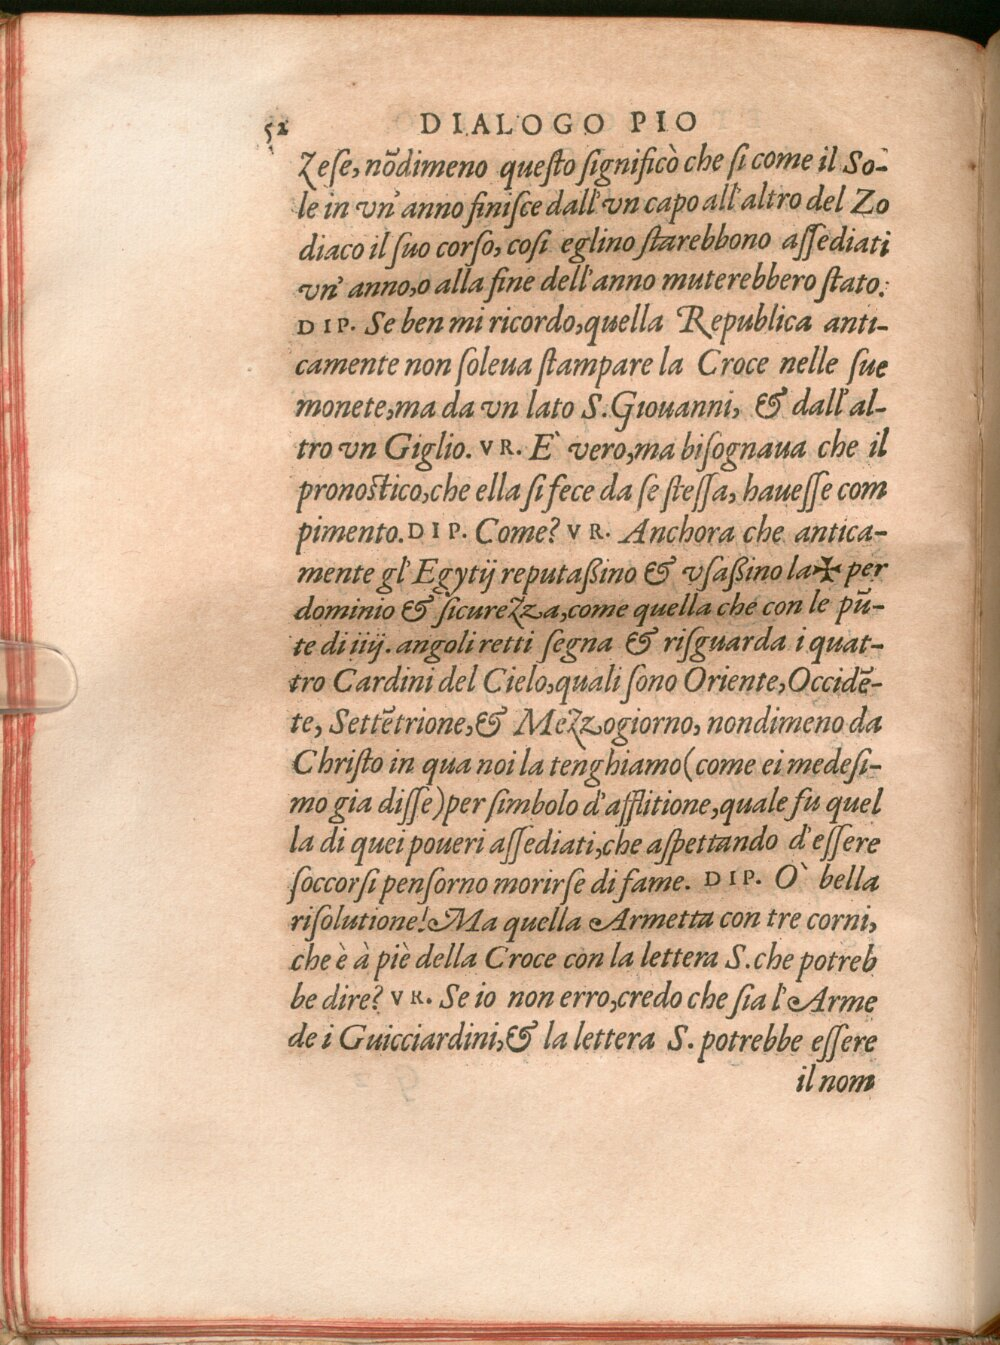 52 DIALOGO PIO
Zese, nõdimeno questo significò che si come il So-
le in vn' anno finisce dall' vn capo all' altro del Zo
diaco il suo corso, cosi eglino starebbono assediati
vn' anno, o alla fine dell' anno muterebbero stato.
DIP. Se ben mi ricordo, quella Republica anti-
camente non soleua stampare la Croce nelle sue
monete, ma da vn lato S. Giouanni, & dall' al-
tro vn Giglio. VR. E` vero, ma bisognaua che il
pronostico, che ella si fece da se stessa, hauesse com
pimento. DIP. Come? VR. Anchora che antica-
mente gl' Egytij reputaßino & vsaßino la ✠ per
dominio & sicurezza, come quella che con le pũ-
te di iiij. angoli retti segna & risguarda i quat-
tro Cardini del Cielo, quali sono Oriente, Occidẽ-
te, Settẽtrione, & Mezzogiorno, nondimeno da
Christo in qua noi la tenghiamo (come ei medesi-
mo gia disse) per simbolo d' afflitione, quale fu quel
la di quei poueri assediati, che aspettando d' essere
soccorsi pensorno morirse di fame. DIP. O` bella
risolutione! Ma quella Armetta con tre corni,
che è à piè della Croce con la lettera S. che potreb
be dire? VR. Se io non erro, credo che sia l' Arme
de i Guicciardini, & la lettera S. potrebbe essere
il nom